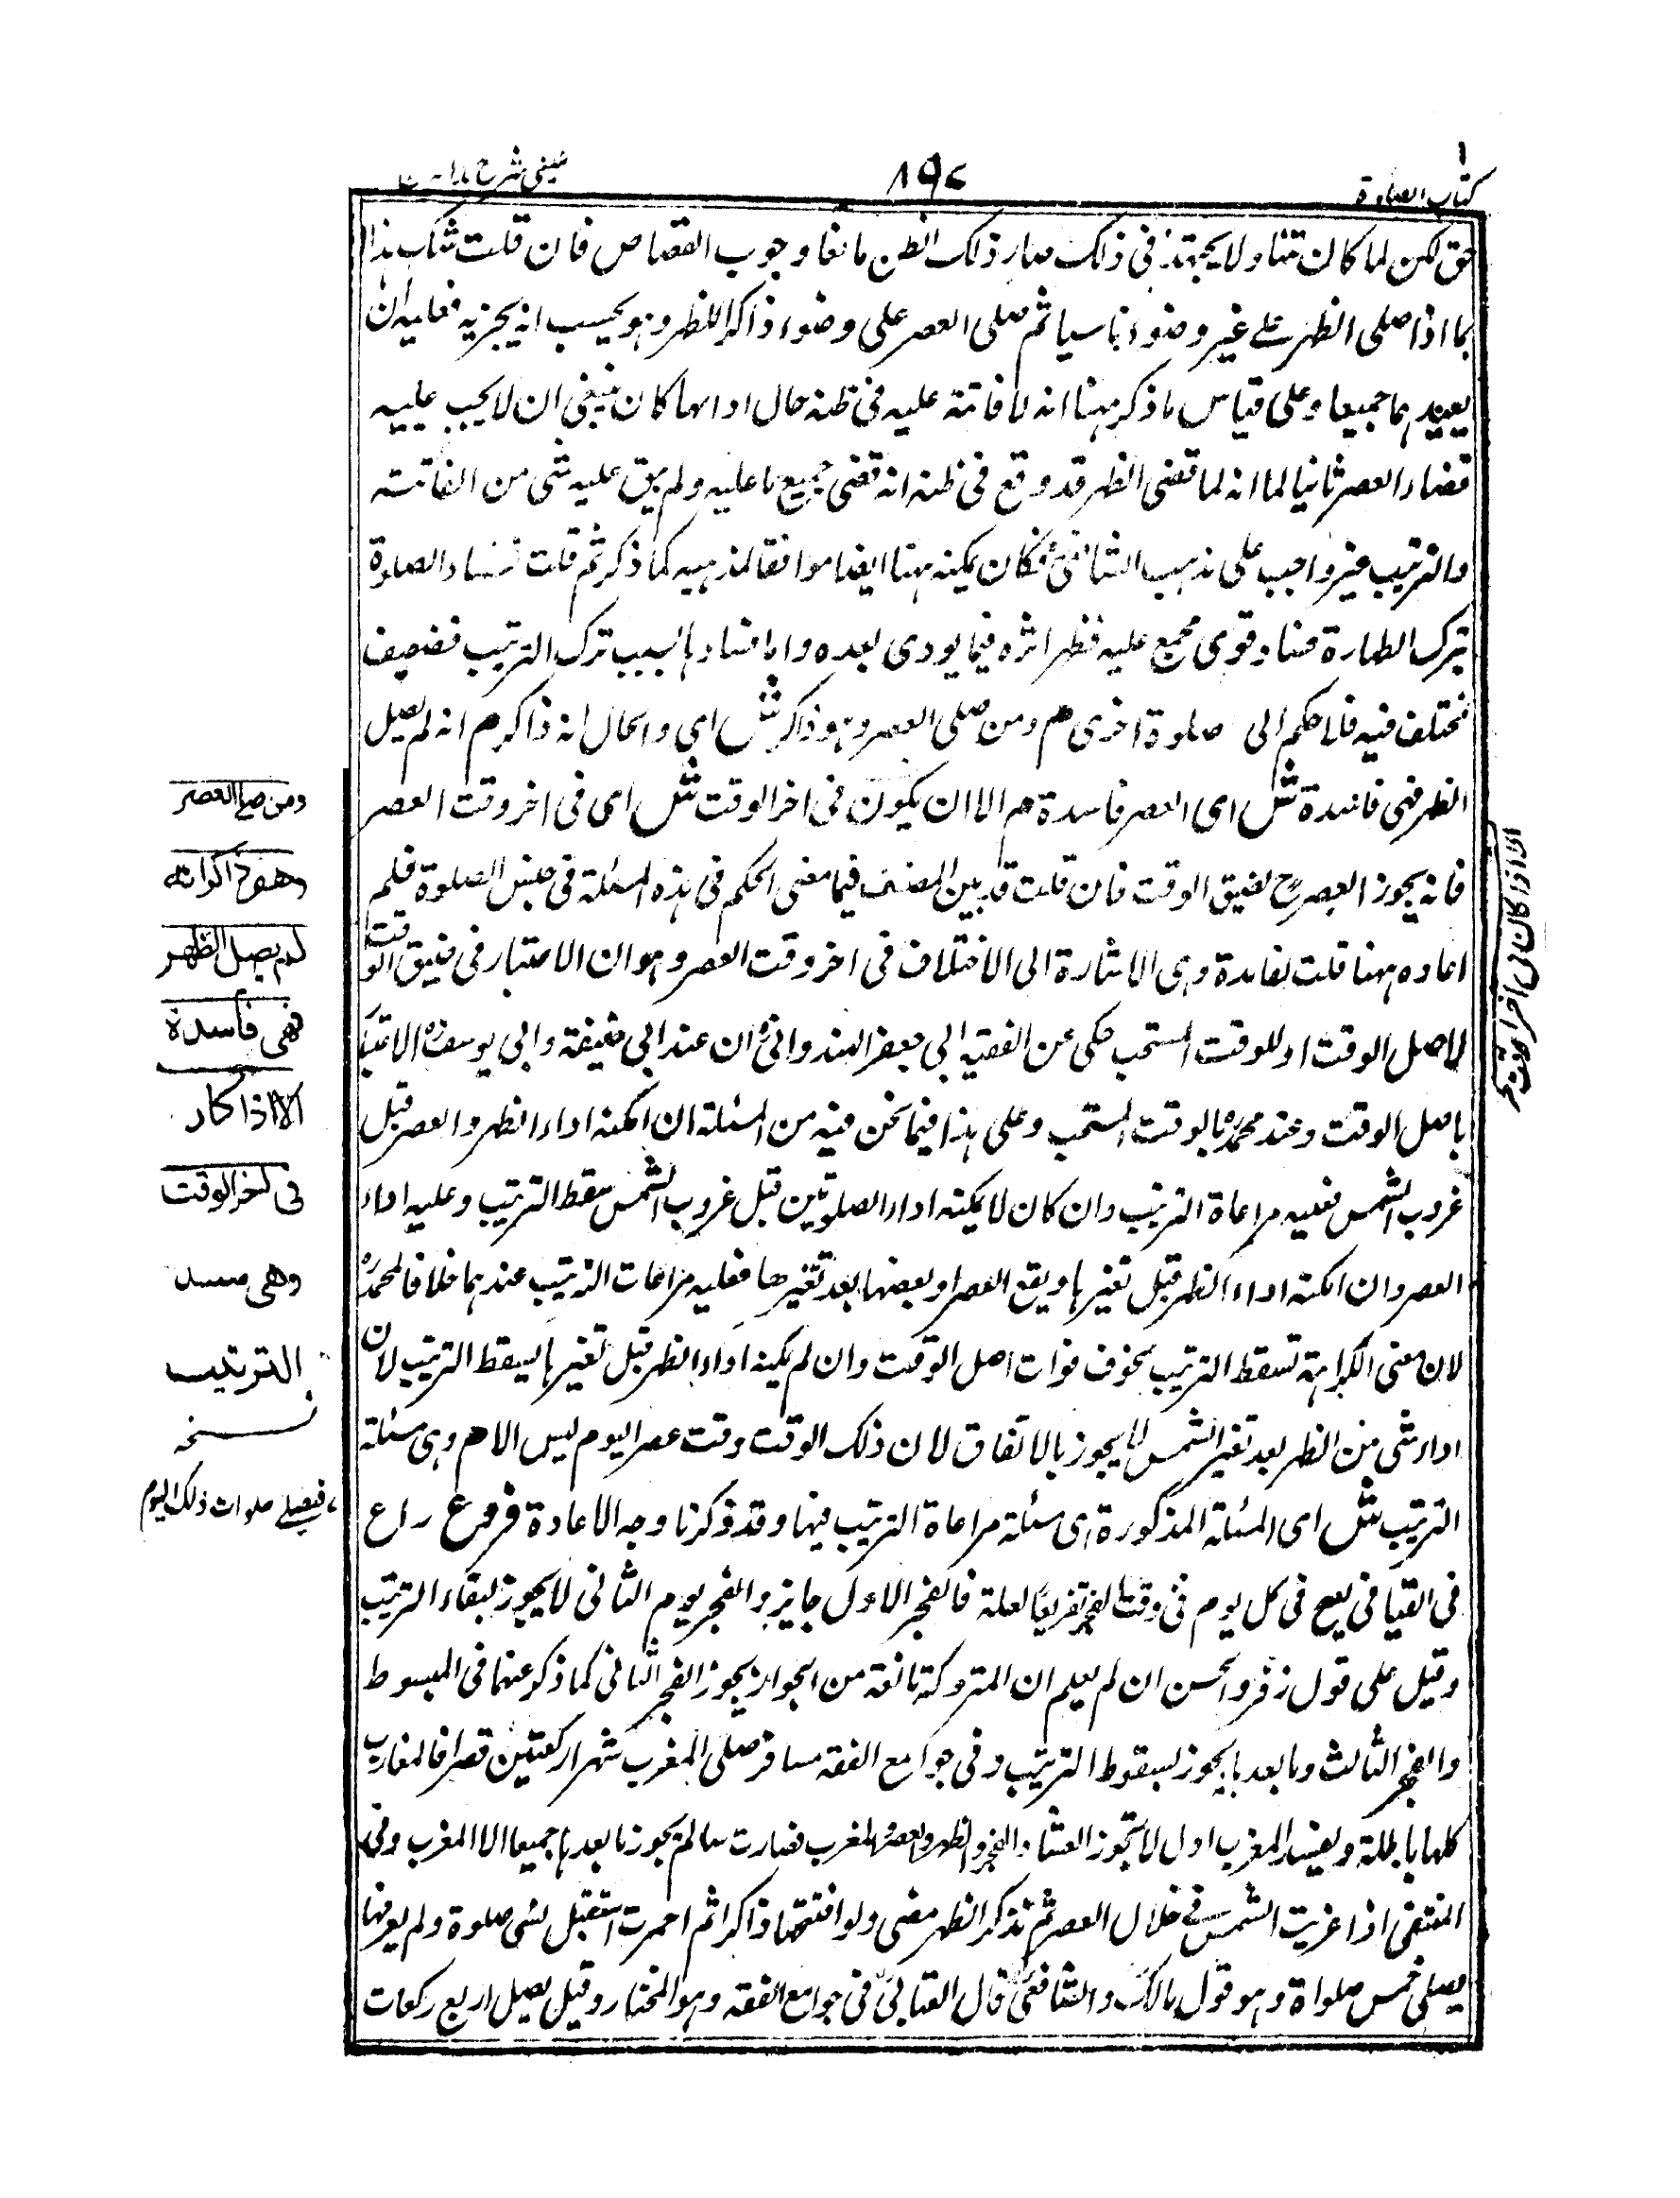 كتاب الصلوة
٨٩٢
عينى شرح هدايه
حق لكن لما كان متناولا يجتهد فى ذلك صار ذلك الظن مانعا وجوب القصاص فان قلت شكل بهذا
بما اذا صلى الظهر على غير وضوء ناسيا ثم صلى العصر على وضوء ذاكرا للظهر وهو يحسب انه يجزيه فعليه ان
يعيدهما جميعا وعلى قياس ما ذكر ههنا انه لا فائتة عليه فى ظنه حال ادائها كان ينبغى ان لا يجب عليه
قضاء العصر ثانيا لما انه لما قضى الظهر قد وقع فى ظنه انه قضى جميع ما عليه ولم يبق عليه شى من الفائتة
والترتيب غير واجب على مذهب الشافعى فكان يمكنه ههنا ايضا موافقا لمذهبه كما ذكر ثم قلت فساد الصلوة
بترك الطهارة فساد قوى مجمع عليه فظهر اثره فيما يودى بعده واما فسادها بسبب ترك الترتيب فضعيف
مختلف فيه فلا حكم الى صلوة اخرى م ومن صلى العصر وهو ذاكر ش اى والحال انه ذاكر م انه لم يصل
الظهر فهى فاسدة ش اى العصر فاسدة م الا ان يكون فى اخر الوقت ش اى فى اخر وقت العصر
فانه يجوز العصرح لضيق الوقت فان قلت قد بين المصنف فيما مضى الحكم فى هذه المسئلة فى جنس الصلوة فلم
اعاده ههنا قلت لفائدة وهى الاشارة الى الاختلاف فى اخر وقت العصر وهو ان الاعتبار فى ضيق الوقت
لاصل الوقت او للوقت المستحب حكى عن الفقيه ابى جعفر الهندوانى ان عند ابى حنيفة وابى يوسف الاعتبار
باصل الوقت وعند محمد بالوقت المستحب وعلى هذا فيما نحن فيه من المسئلة ان امكنه اداء الظهر والعصر قبل
غروب الشمس فعليه مراعاة الترتيب وان كان لا يمكنه اداء الصلوتين قبل غروب الشمس سقط الترتيب وعليه اداء
العصر وان امكنه اداء الظهر قبل تغيرها ويقع العصر او بعضها بعد تغيرها فعليه مراعات الترتيب عندهما خلافا لمحمد
لان معنى الكراهة تسقط الترتيب بخوف فوات اصل الوقت وان لم يمكنه اداء الظهر قبل تغيرها يسقط الترتيب لان
اداء شى من الظهر بعد تغير الشمس لا يجوز بالاتفاق لان ذلك الوقت وقت عصر اليوم ليس الا م وهى مسئلة
الترتيب ش اى المسئلة المذكورة اى مسئلة مراعاة الترتيب فيها وقد ذكرنا وجه الاعادة فروع راع
فى كل يوم فى وقت لعلة فالفجر الاول جايز والفجر يوم الثانى لا يجوز لبقاء الترتيب
وقيل على قول زفر والحسن ان لم يعلم ان المتروكة مانعة من الجواز يجوز الفجر الثانى كما ذكر عنهما فى المبسوط
والفجر الثالث وما بعدها يجوز لسقوط الترتيب وفى جوامع الفقه مسافر صلى المغرب شهرا ركعتين قصرا فالمغارب
كلها باطلة وبعد المغرب اول لا تجوز العشاء والفجر والظهر والعصر والمغرب فصارت ستا لم يجوز ما بعدها جميعا الا المغرب وفى
المنتقى اذا غربت الشمس فى خلال العصر ثم تذكر الظهر مضى ولو افتتحها ذاكرا ثم احمرت استقبل نسى صلوة ولم يعرفها
يصلى خمس صلواة وهو قول مالك والشافعى قال العتابى فى جوامع الفقه وهو المختار وقيل يصل اربع ركعات
ومن صلى العصر
وهو ذاكر انه
لم يصل الظهر
فهى فاسدة
الا اذا كان
فى اخر الوقت
وهى مسئلة
الترتيب
نسخه
فيصلى صلوات ذلك اليوم
الا اذا كان فى اخر الوقت